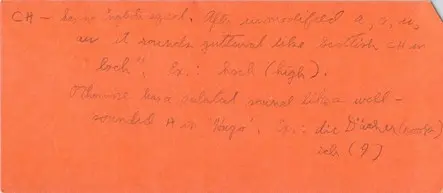 CH – has no English equiv. After unmodified a, o, u,
au it sounds guttural like Scottish CH in
"loch", Ex.: hoch (high).
Otherwise has a palatal sound like a well-
sounded H in "Hugo". Ex.: die Bücher (books)
ich (I)